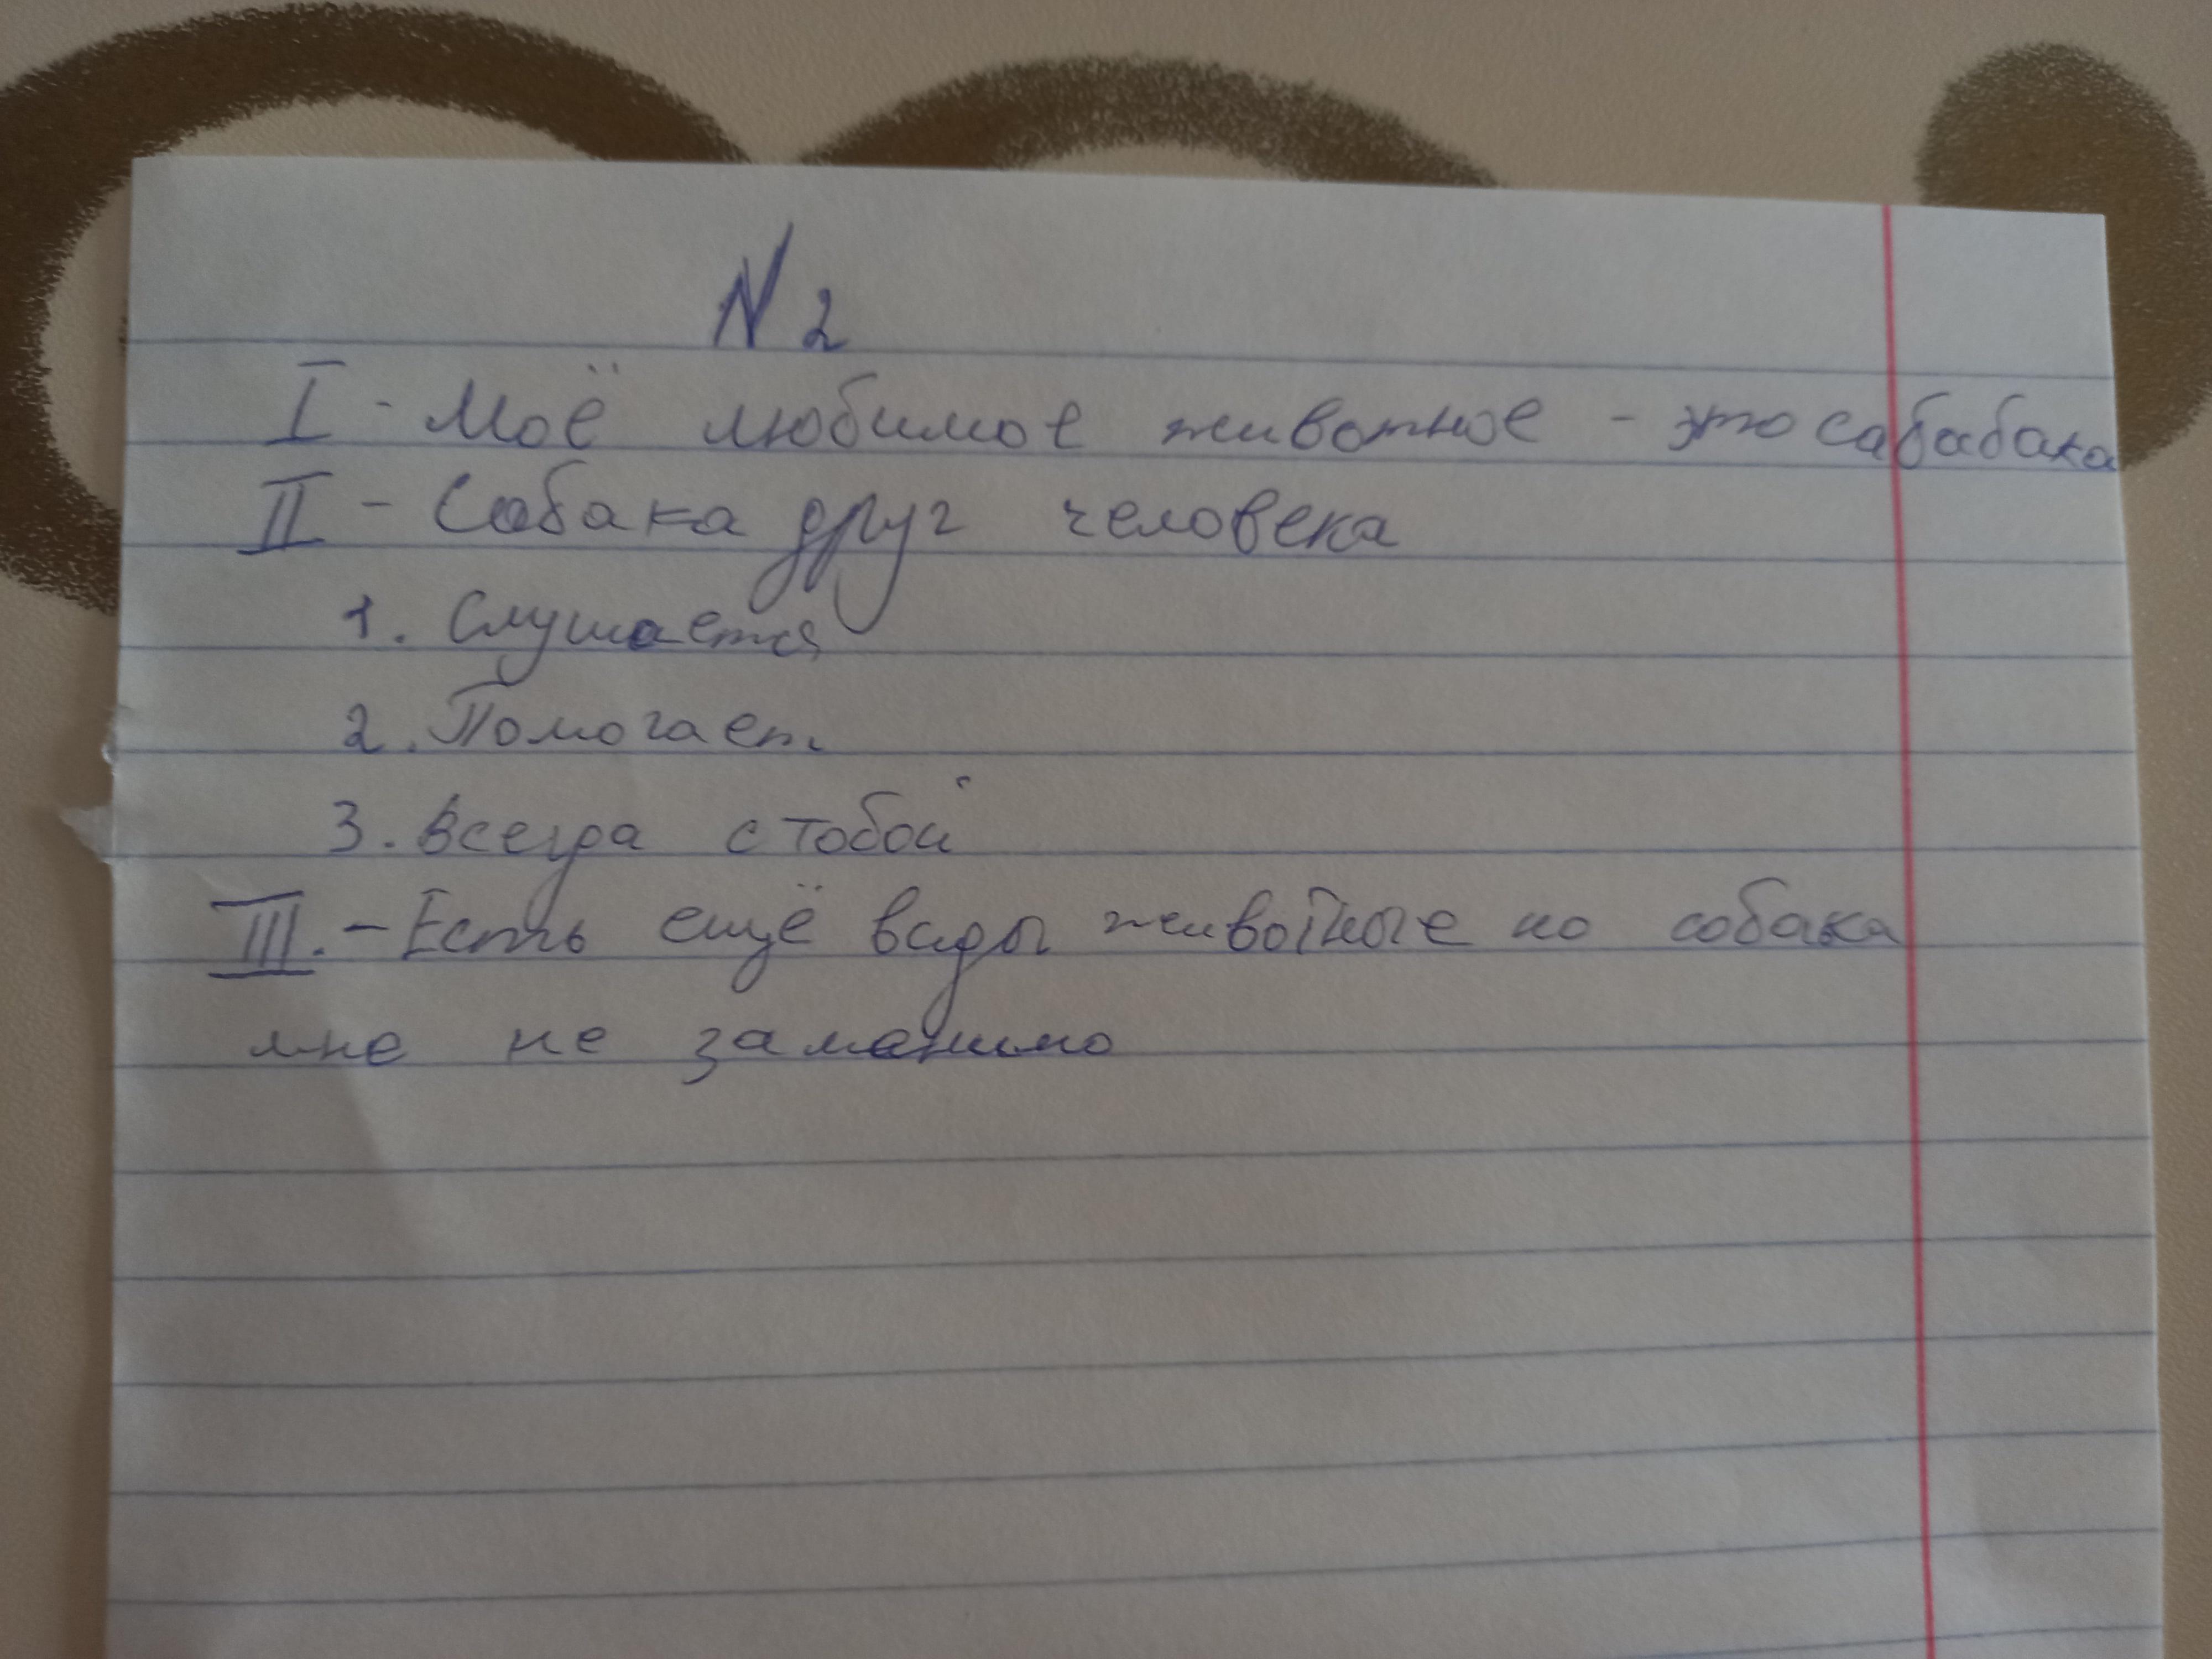 N 2
I - Моё любимое животное - это сабабака
II - Собака друг человека
1. Слушается
2. Помогает
3. Всегда с тобой
III. - Есть ещё виды животные но собака
мне не заменимо